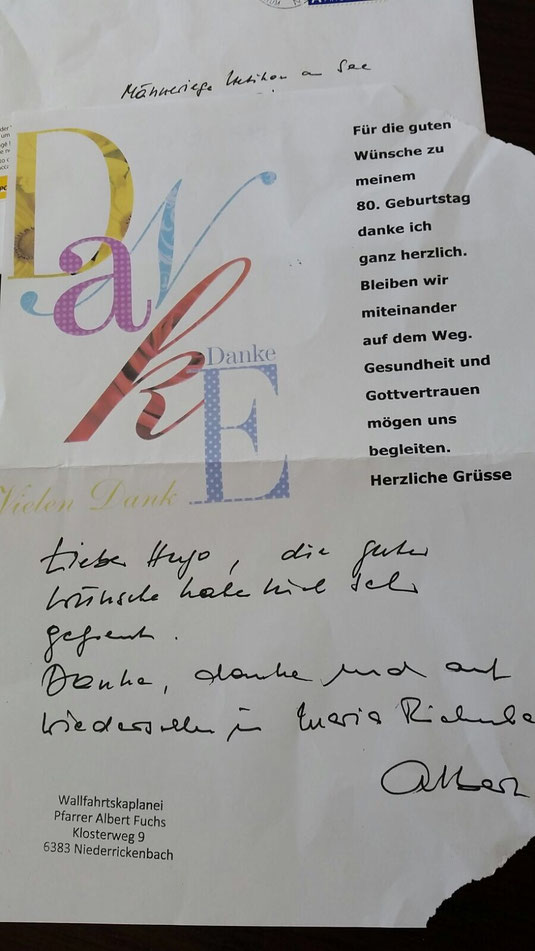 Männerriege Uetikon am See
Danke
Danke
Vielen Dank
Für die guten
Wünsche zu
meinem
80. Geburtstag
danke ich
ganz herzlich.
Bleiben wir
miteinander
auf dem Weg.
Gesundheit und
Gottvertrauen
mögen uns
begleiten.
Herzliche Grüsse
Lieber Hugo, die guten
Wünsche haben mich sehr
gefreut.
Danke, danke und auf
Wiedersehen in Maria Rickenba
Albert
Wallfahrtskaplanei
Pfarrer Albert Fuchs
Klosterweg 9
6383 Niederrickenbach